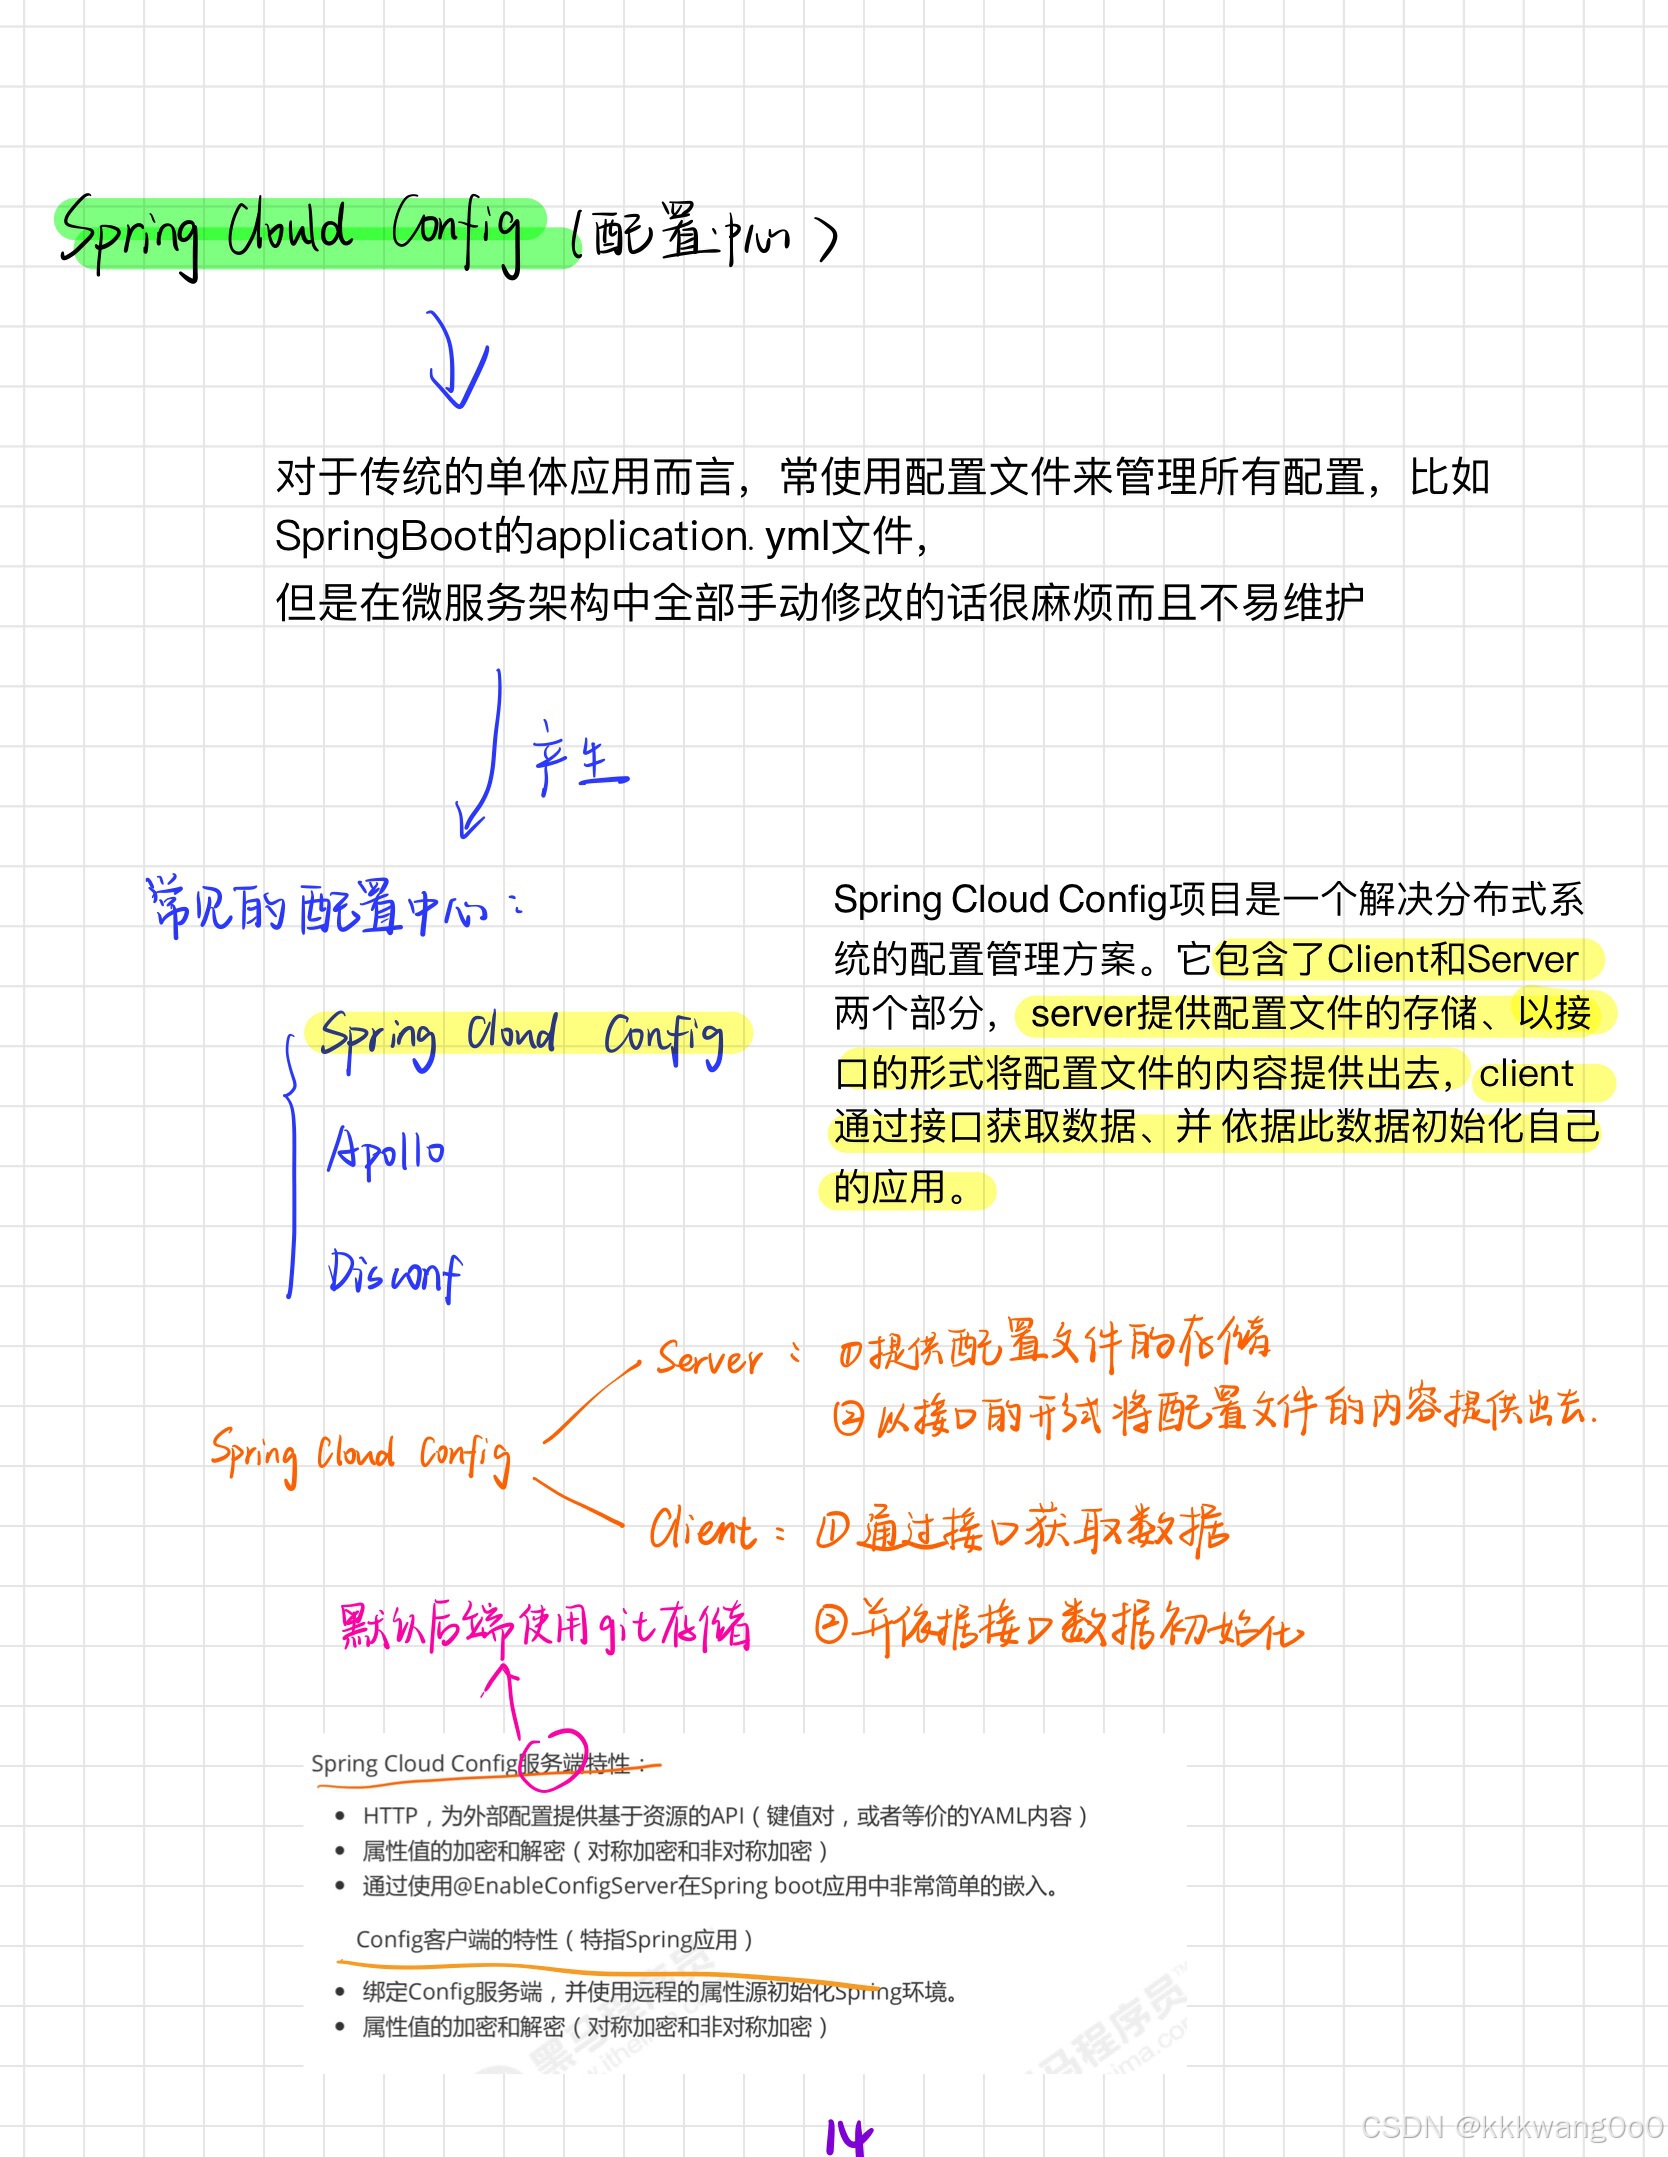 Spring Clould Config（配置中心）
对于传统的单体应用而言，常使用配置文件来管理所有配置，比如
SpringBoot的application. yml文件，
但是在微服务架构中全部手动修改的话很麻烦而且不易维护
产生
常见的配置中心：
Spring Cloud Config
Apollo
Disconf
Spring Cloud Config项目是一个解决分布式系
统的配置管理方案。它包含了Client和Server
两个部分，server提供配置文件的存储、以接
口的形式将配置文件的内容提供出去，client
通过接口获取数据、并 依据此数据初始化自己
的应用。
Spring Cloud Config
Server：①提供配置文件的存储
②以接口的形式将配置文件的内容提供出去.
Client：①通过接口获取数据
②并依据接口数据初始化
默认后端使用git存储
Spring Cloud Config服务端特性：
• HTTP，为外部配置提供基于资源的API（键值对，或者等价的YAML内容）
• 属性值的加密和解密（对称加密和非对称加密）
• 通过使用@EnableConfigServer在Spring boot应用中非常简单的嵌入。
Config客户端的特性（特指Spring应用）
• 绑定Config服务端，并使用远程的属性源初始化Spring环境。
• 属性值的加密和解密（对称加密和非对称加密）
黑马程序员
马程序员™
14
CSDN @kkkwang0o0